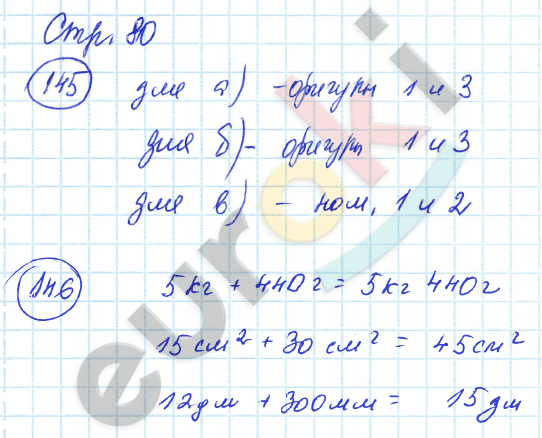 Стр. 80
145 для а) - фигуры 1 и 3
для б) - фигуры 1 и 3
для в) - ном. 1 и 2
146 5кг + 440г = 5кг 440г
15см² + 30 см² = 45см²
12дм + 300мм = 15дм
euroki